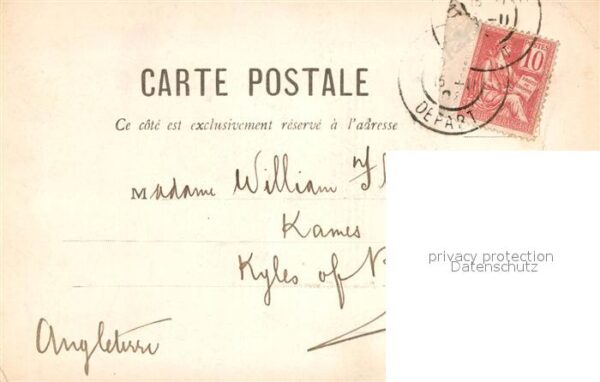 CARTE POSTALE
POSTES
10
DEPART
Ce côté est exclusivement réservé à l'adresse
Madame William
Kames
Kyles of
Angleterre
privacy protection
Datenschutz